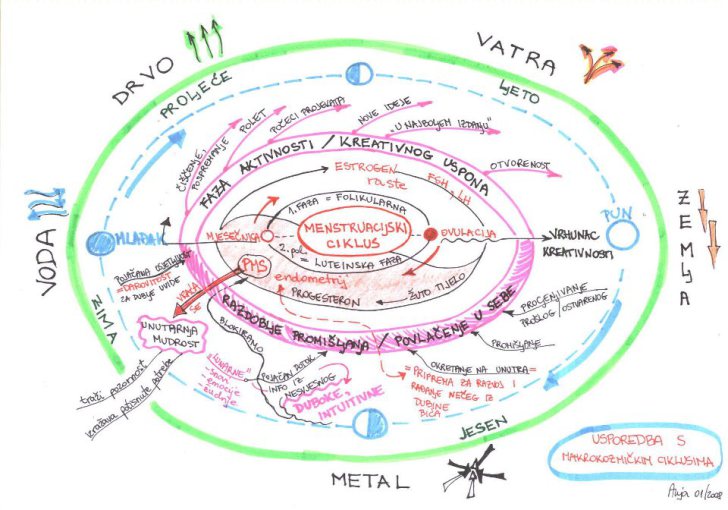 DRVO
VATRA
PROLJEĆE
LJETO
ČIŠĆENJE,
POSPREMANJE
POLET
POČECI PROJEKATA
NOVE IDEJE
"U NAJBOLJEM IZDANJU"
OTVORENOST
FAZA AKTIVNOSTI / KREATIVNOG USPONA
ESTROGEN
raste
FSH i LH
1. FAZA = FOLIKULARNA
MENSTRUACIJSKI
CIKLUS
MJESEČNICA
OVULACIJA
2. pol.
= LUTEINSKA FAZA
VODA
MLADAK
PUN
ZEMLJA
VRHUNAC
KREATIVNOSTI
PMS
endometrij
PROGESTERON
ŽUTO TIJELO
POJAČANA OSJETLJIVOST
= DAROVITOST
ZA DUBLJE UVIDE
VRAĆA
SE
ZIMA
UNUTARNJA
MUDROST
RAZDOBLJE PROMIŠLJANJA / POVLAČENJE U SEBE
PROCJENJIVANJE
PROŠLOG/OSTVARENOG
PROMIŠLJANJE
OKRETANJE NA UNUTRA =
= PRIPREMA ZA RAZVOJ I
RAĐANJE NEČEG IZ
DUBINE
BIĆA
BLOKIRAMO
"LUNARNE"
- snovi
- emocije
- žudnje
POJAČAN DOTOK
INFO IZ
NESVJESNOG
DUBOKE,
INTUITIVNE
traži pozornost
izražava potisnute potrebe
JESEN
METAL
USPOREDBA S
MAKROKOZMIČKIM CIKLUSIMA
Anja 01/2008